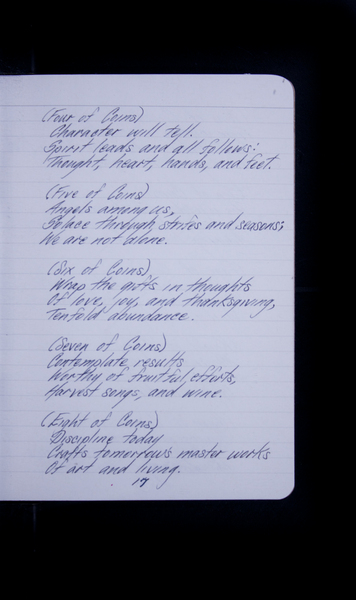 (Four of Coins)
Character will tell.
Spirit leads and all follows:
Thought, heart, hands, and feet.
(Five of Coins)
Angels among us,
Solace through strifes and seasons;
We are not alone.
(Six of Coins)
Wrap the gifts in thoughts
Of love, joy, and thanksgiving,
Tenfold abundance.
(Seven of Coins)
Contemplate results
Worthy of fruitful efforts,
Harvest songs, and wine.
(Eight of Coins)
Discipline today
Crafts tomorrow's master works
Of art and living.
17